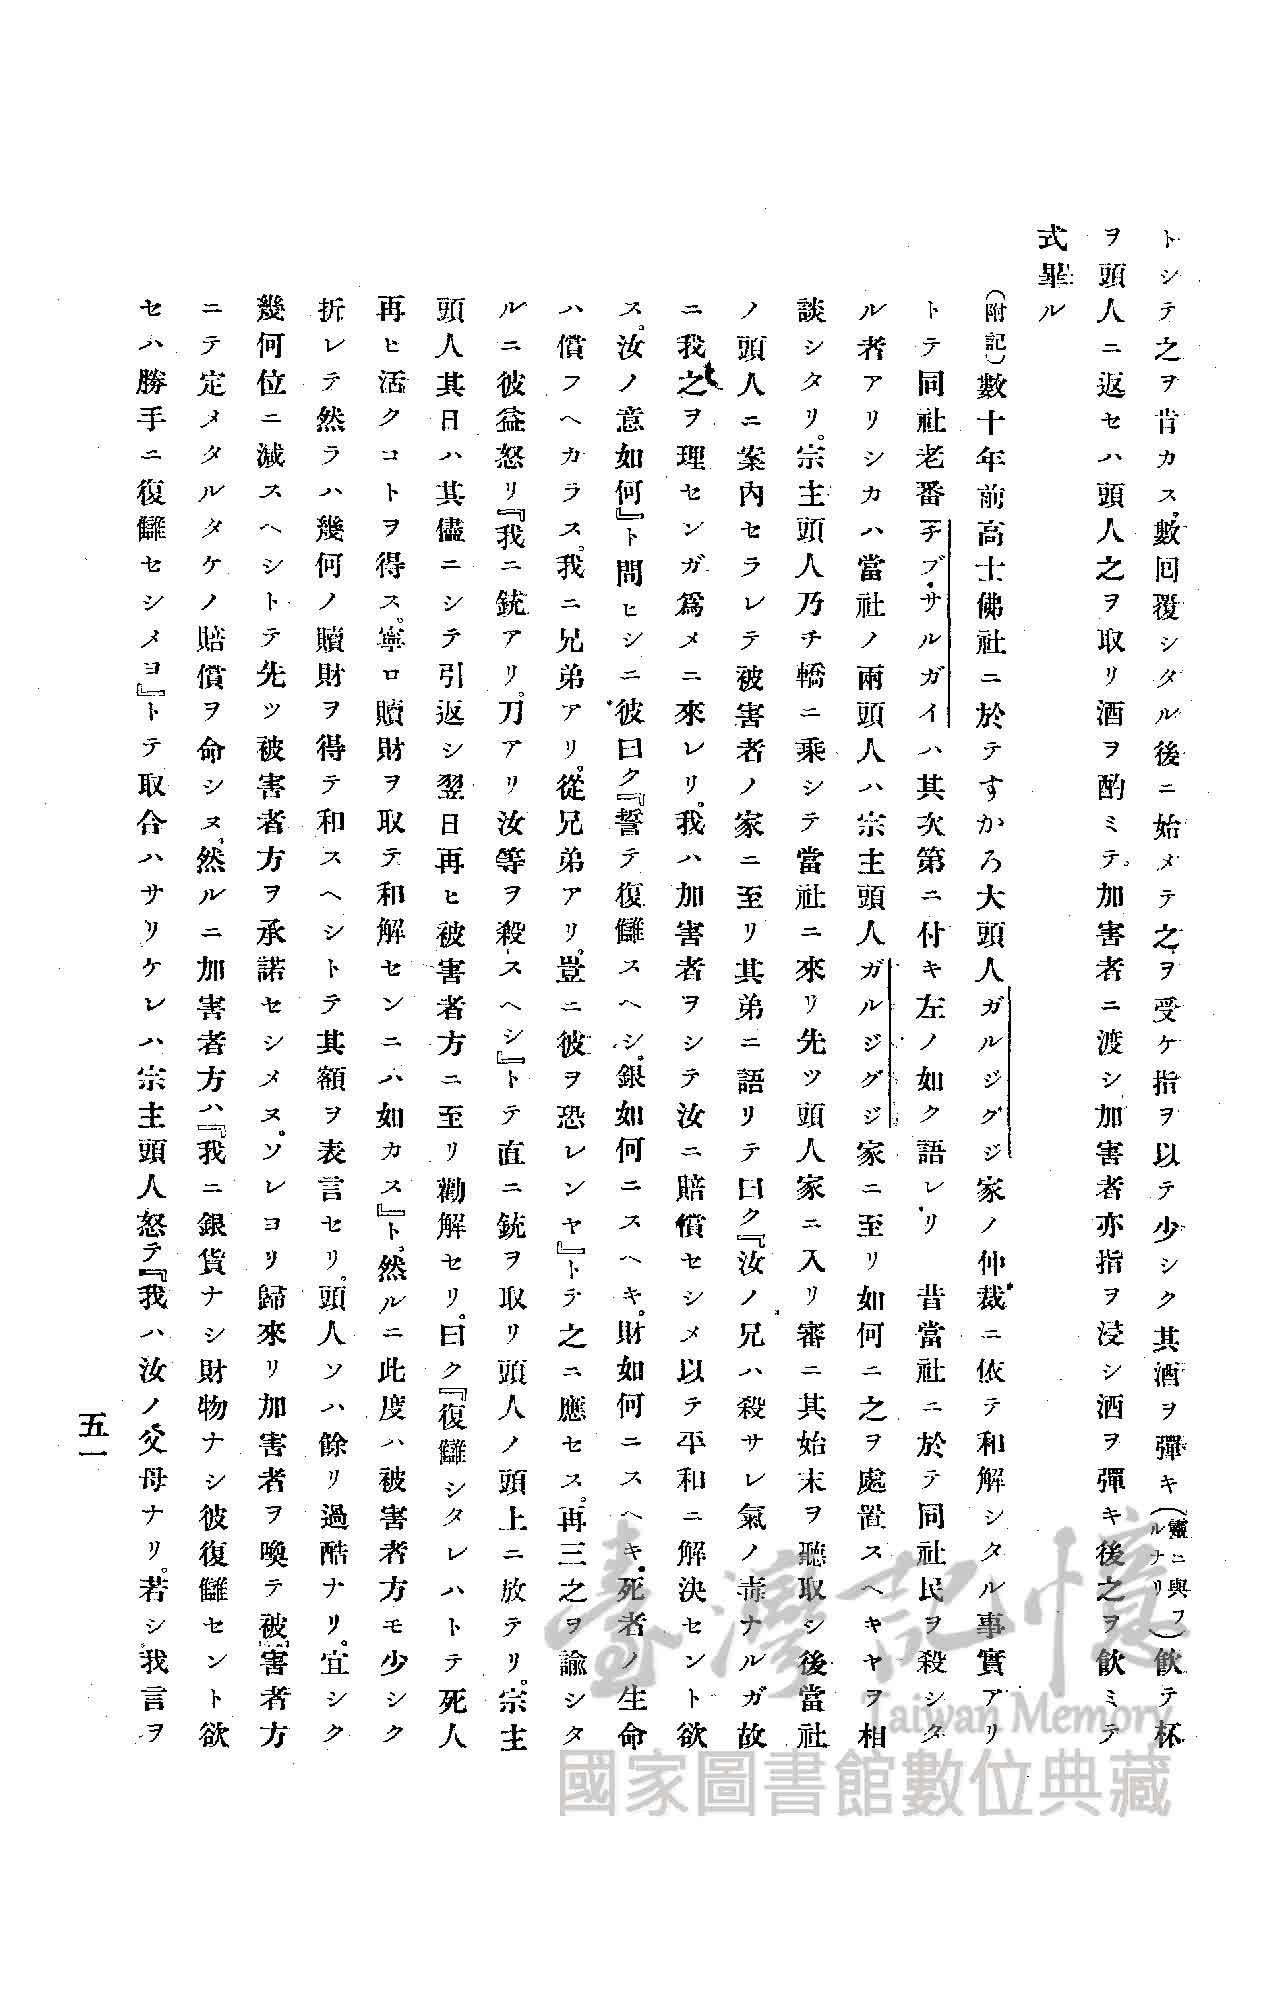 トシテ之ヲ肯カス、數回覆シタル後ニ始メテ之ヲ受ケ指ヲ以テ少シク其酒ヲ彈キ(靈ニ與フルナリ)飲テ杯
ヲ頭人ニ返セハ頭人之ヲ取リ酒ヲ酌ミテ。加害者ニ渡シ加害者亦指ヲ浸シ酒ヲ彈キ後之ヲ飲ミテ
式畢ル
(附記)數十年前高士佛社ニ於テすかろ大頭人ガルジグジ家ノ仲裁ニ依テ和解シタル事實アリ
トテ同社老番チブ・サルガイハ其次第ニ付キ左ノ如ク語レリ　昔當社ニ於テ同社民ヲ殺シタ
ル者アリシカハ當社ノ兩頭人ハ宗主頭人ガルジグジ家ニ至リ如何ニ之ヲ處置スヘキヤヲ相
談シタリ。宗主頭人乃チ轎ニ乘シテ當社ニ來リ先ツ頭人家ニ入リ審ニ其始末ヲ聽取シ後當社
ノ頭人ニ案内セラレテ被害者ノ家ニ至リ其弟ニ語リテ曰ク『汝ノ兄ハ殺サレ氣ノ毒ナルガ故
ニ我之ヲ理センガ爲メニ來レリ。我ハ加害者ヲシテ汝ニ賠償セシメ以テ平和ニ解決セント欲
ス。汝ノ意如何』ト問ヒシニ彼曰ク『誓テ復讎スヘシ。銀如何ニスヘキ。財如何ニスヘキ。死者ノ生命
ハ償フヘカラス。我ニ兄弟アリ。從兄弟アリ。豈ニ彼ヲ恐レンヤ』トテ之ニ應セス。再三之ヲ諭シタ
ルニ彼益怒リ『我ニ銃アリ。刀アリ汝等ヲ殺スヘシ』トテ直ニ銃ヲ取リ頭人ノ頭上ニ放テリ。宗主
頭人其日ハ其儘ニシテ引返シ翌日再ヒ被害者方ニ至リ勸解セリ。曰ク『復讎シタレハトテ死人
再ヒ活クコトヲ得ス。寧ロ贖財ヲ取テ和解センニハ如カス』ト。然ルニ此度ハ被害者方モ少シク
折レテ然ラハ幾何ノ贖財ヲ得テ和スヘシトテ其額ヲ表言セリ。頭人ソハ餘リ過酷ナリ。宜シク
幾何位ニ減スヘシトテ先ツ被害者方ヲ承諾セシメヌ。ソレヨリ歸來リ加害者ヲ喚テ被害者方
ニテ定メタルタケノ賠償ヲ命シヌ。然ルニ加害者方ハ『我ニ銀貨ナシ財物ナシ彼復讎セント欲
セハ勝手ニ復讎セシメヨ』トテ取合ハサリケレハ宗主頭人怒テ『我ハ汝ノ父母ナリ。若シ我言ヲ
五一
臺灣記憶
Taiwan Memory
國家圖書館數位典藏